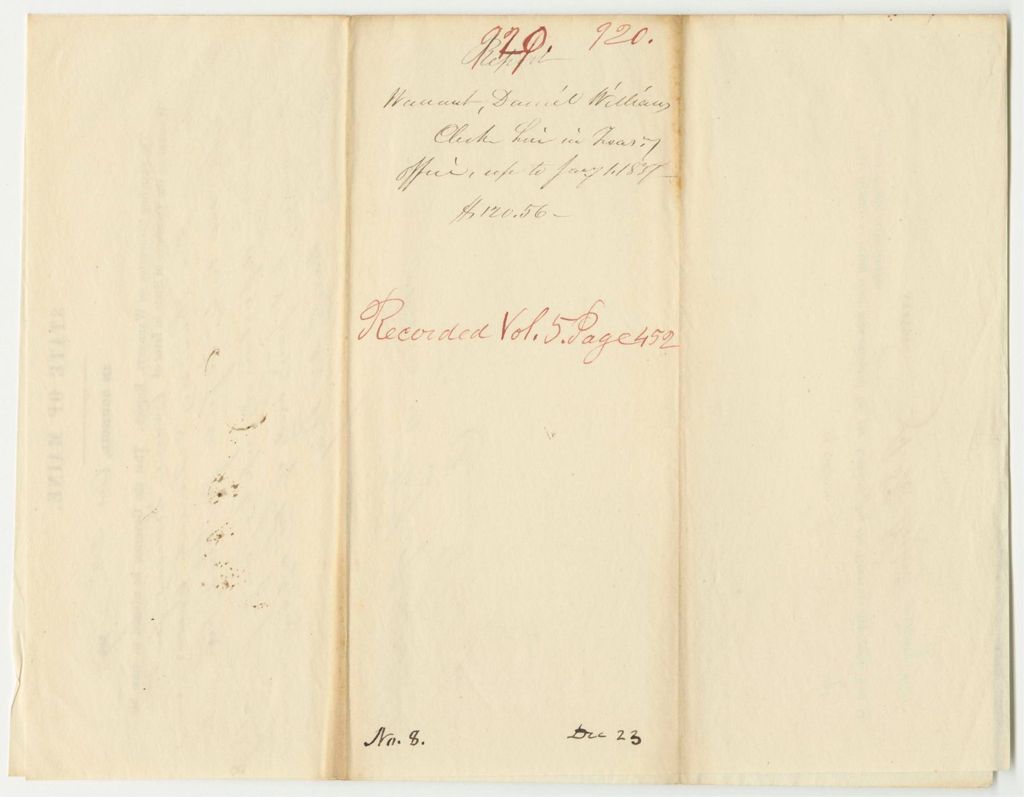 920. 920.
Report
Warrant, Daniel Williams
Clerk hire in Treasy
office, up to Jany 1. 1837
$120.56
Recorded Vol. 5. Page 452
No. 8. Dec 23
STATE OF MAINE.